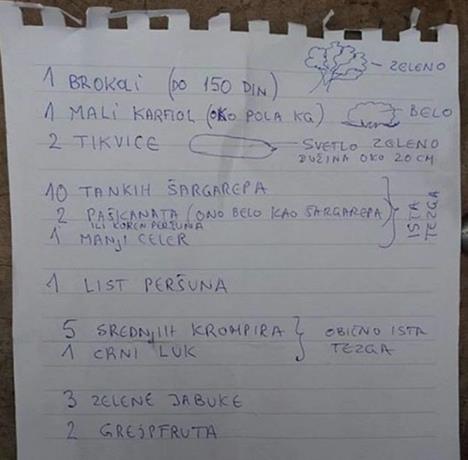 1 BROKOLI (DO 150 DIN) - ZELENO
1 MALI KARFIOL (OKO POLA KG) BELO
2 TIKVICE SVETLO ZELENO
DUŽINA OKO 20 CM
10 TANKIH ŠARGAREPA
2 PAŠKANATA (ONO BELO KAO ŠARGAREPA)
ILI KOREN PERŠUNA
1 MANJI CELER
ISTA
TEZGA
1 LIST PERŠUNA
5 SREDNJIH KROMPIRA
1 CRNI LUK
OBIČNO ISTA
TEZGA
3 ZELENE JABUKE
2 GREJPFRUTA